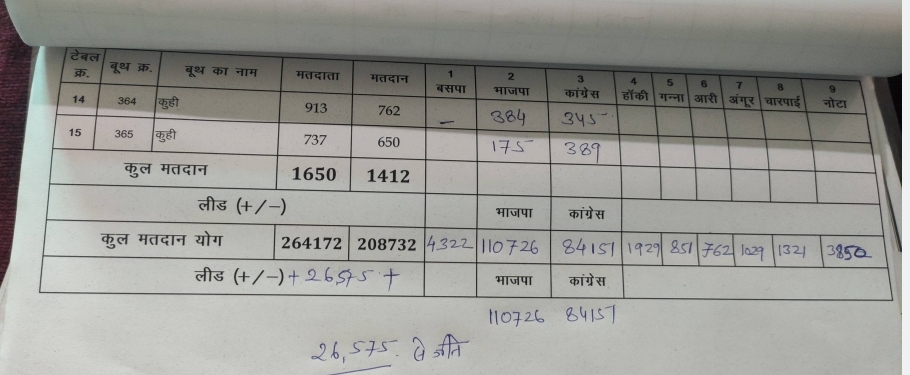 टेबल क्र. बूथ क्र. बूथ का नाम मतदाता मतदान 1 बसपा 2 भाजपा 3 कांग्रेस 4 हॉकी 5 गन्ना 6 आरी 7 अंगूर 8 चारपाई 9 नोटा
14 364 कुही 913 762 – 384 345
15 365 कुही 737 650 175 389
कुल मतदान 1650 1412
लीड (+/–) भाजपा कांग्रेस
कुल मतदान योग 264172 208732 4322 110726 84151 1929 851 762 1029 1321 3850
लीड (+/–) + 26575 + भाजपा कांग्रेस
110726 84151
26,575. से जीते